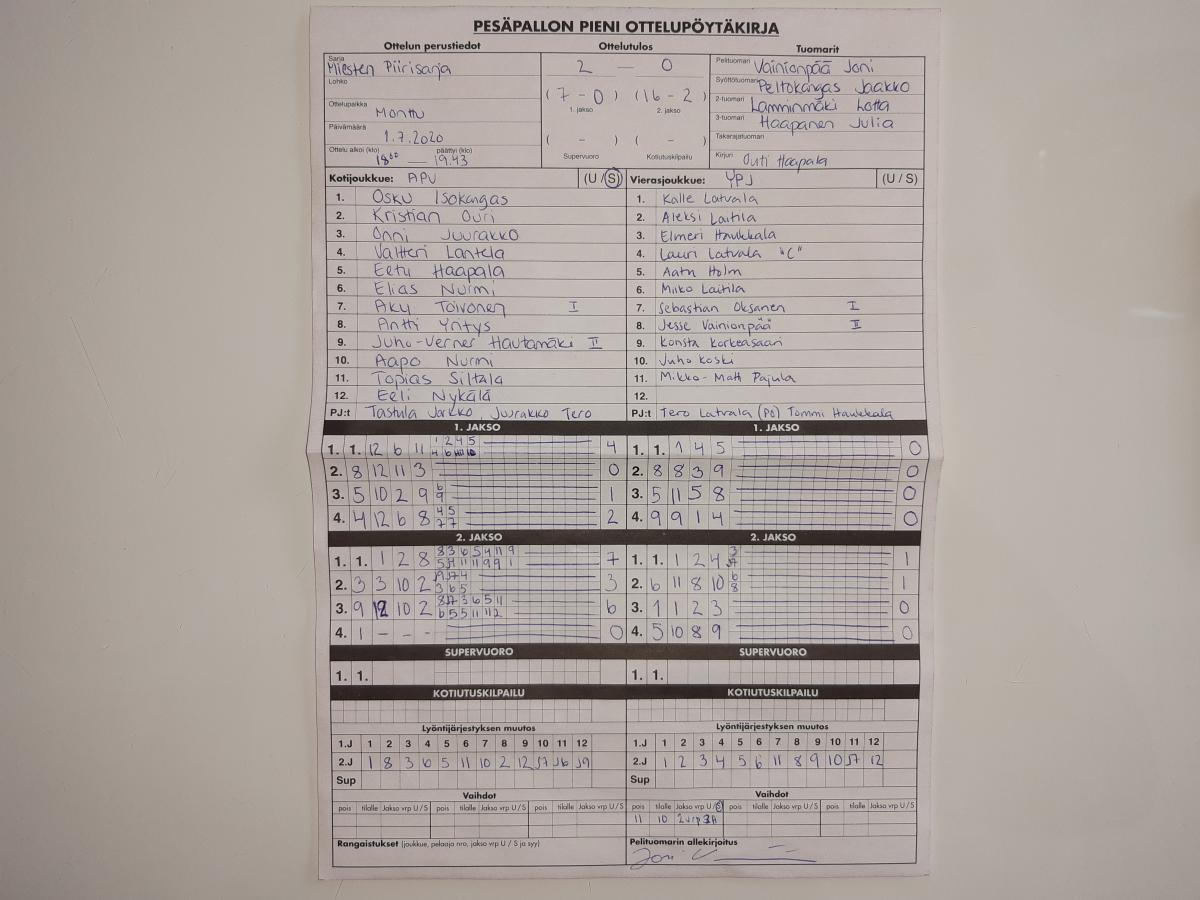 PESÄPALLON PIENI OTTELUPÖYTÄKIRJA
Ottelun perustiedot Ottelutulos Tuomarit
Sarja Miesten Piirisarja
Lohko
Ottelupaikka Monttu
Päivämäärä 1.7.2020
Ottelu alkoi (klo) päättyi (klo)
18⁰⁰ — 19.43
2 — 0
(7 - 0) (16 - 2)
1. jakso 2. jakso
( - ) ( - )
Supervuoro Kotiutuskilpailu
Pelituomari Vainionpää Joni
Syöttötuomari Peltokangas Jaakko
2-tuomari Lamminmäki Lotta
3-tuomari Haapanen Julia
Takarajatuomari
Kirjuri Outi Haapala
Kotijoukkue: APV (U / S) Vierasjoukkue: YPJ (U / S)
1. Osku Isokangas 1. Kalle Latvala
2. Kristian Ouri 2. Aleksi Laitila
3. Onni Juurakko 3. Elmeri Haukkala
4. Valtteri Lantela 4. Lauri Latvala "C"
5. Eetu Haapala 5. Aatu Holm
6. Elias Nurmi 6. Miko Laitila
7. Aku Toivonen I 7. Sebastian Oksanen I
8. Antti Yritys 8. Jesse Vainionpää II
9. Juho-Verner Hautamäki II 9. Konsta Korkeasaari
10. Aapo Nurmi 10. Juho Koski
11. Topias Siltala 11. Mikko-Matti Pajula
12. Eeli Nykälä 12.
PJ:t Tastula Jarkko, Juurakko Tero PJ:t Tero Latvala (PO) Tommi Haukkala
1. JAKSO 1. JAKSO
1. 1. 12 6 11 1 2 4 5 4 1. 1. 1 4 5 0
2. 8 12 11 3 0 2. 8 8 3 9 0
3. 5 10 2 9 6 9 1 3. 5 11 5 8 0
4. 4 12 6 8 4 5 7 7 2 4. 9 9 1 4 0
2. JAKSO 2. JAKSO
1. 1. 1 2 8 8 3 6 5 4 11 9 7 1. 1. 1 2 4 3 1
2. 3 3 10 2 3 6 5 3 2. 6 11 8 10 6 8 1
3. 9 12 10 2 6 5 5 11 11 2 6 3. 1 1 2 3 0
4. 1 - - - 0 4. 5 10 8 9 0
SUPERVUORO SUPERVUORO
1. 1. 1. 1.
KOTIUTUSKILPAILU KOTIUTUSKILPAILU
Lyöntijärjestyksen muutos Lyöntijärjestyksen muutos
1.J 1 2 3 4 5 6 7 8 9 10 11 12 1.J 1 2 3 4 5 6 7 8 9 10 11 12
2.J 1 8 3 6 5 11 10 2 12 J7 J6 J9 2.J 1 2 3 4 5 6 11 8 9 10 J7 12
Sup Sup
Vaihdot Vaihdot
pois tilalle Jakso vrp U / S pois tilalle Jakso vrp U / S pois tilalle Jakso vrp U / S pois tilalle Jakso vrp U / S pois tilalle Jakso vrp U / S pois tilalle Jakso vrp U / S
11 10
Rangaistukset (joukkue, pelaaja nro, jakso vrp U / S ja syy) Pelituomarin allekirjoitus
Joni